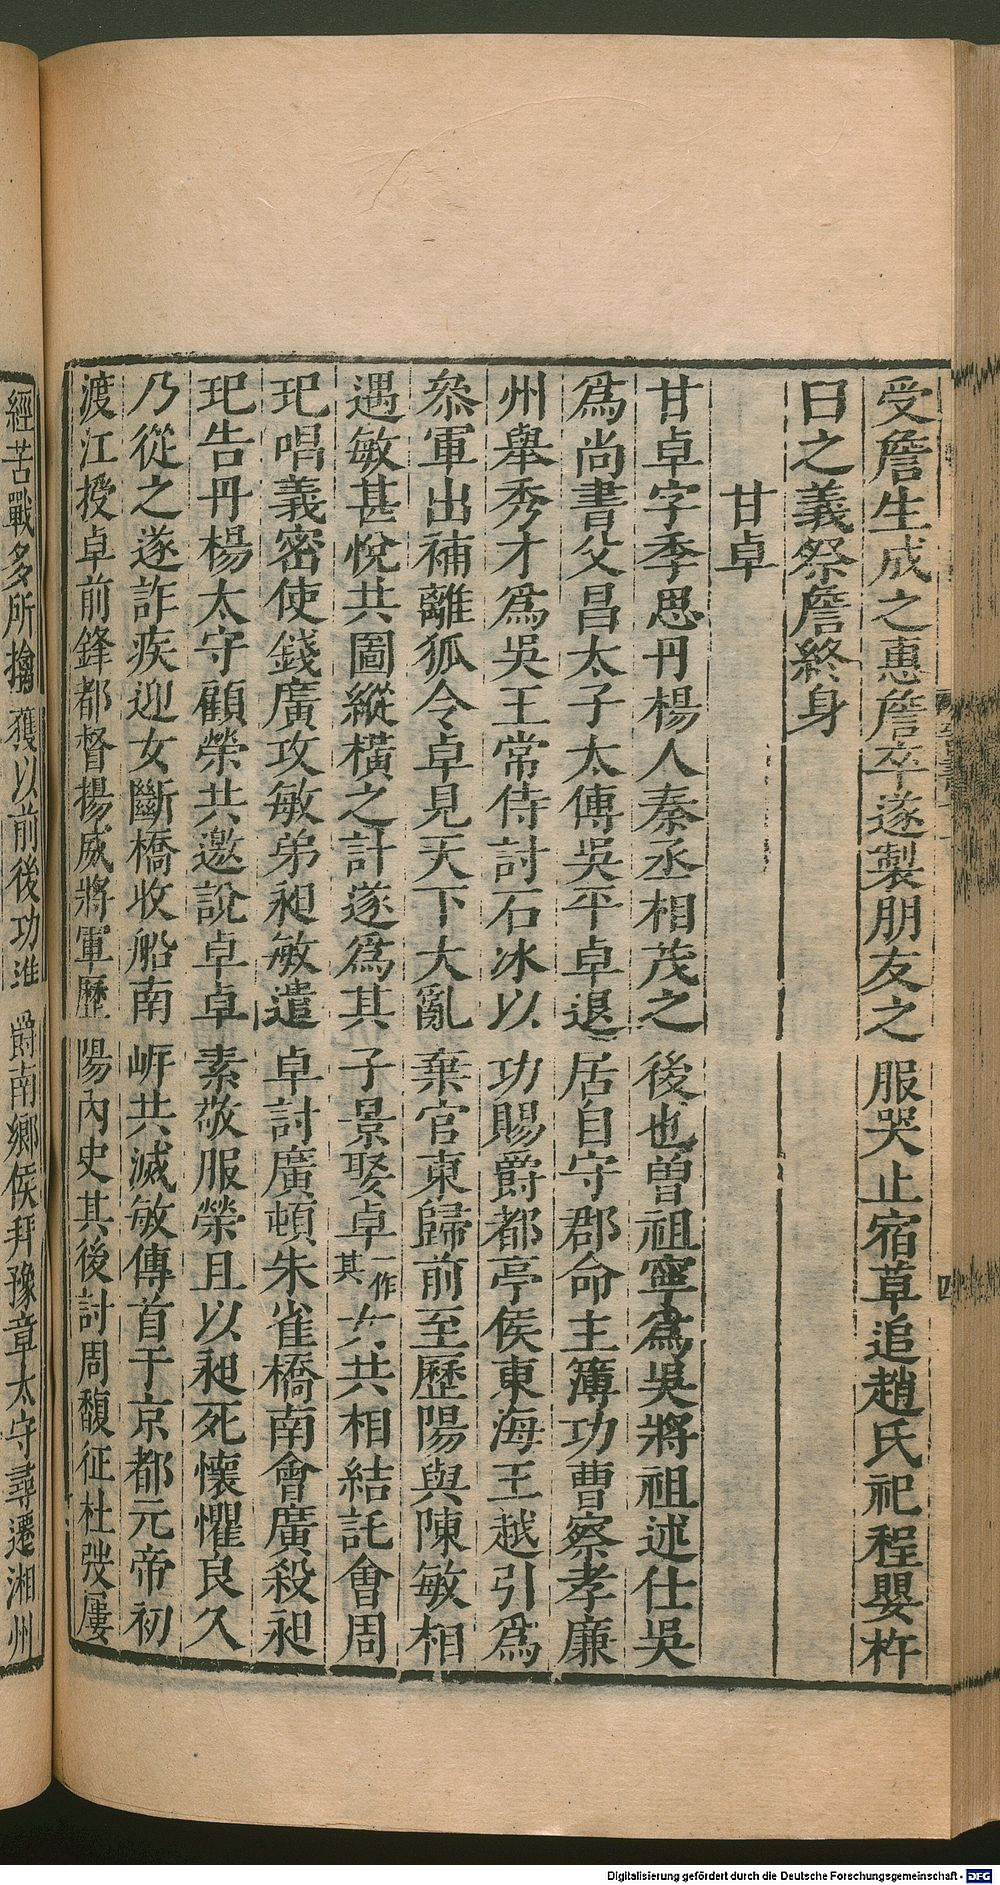 受詹生成之惠詹卒遂製朋友之服哭止宿草追趙氏祀程嬰杵
臼之義祭詹終身
甘卓
甘卓字季思丹楊人秦丞相茂之後也曾祖寧爲吳將祖述仕吳
爲尚書父昌太子太傅吳平卓退居自守郡命主簿功曹察孝廉
州舉秀才爲吳王常侍討石冰以功賜爵都亭侯東海王越引爲
叅軍出補離狐令卓見天下大亂棄官東歸前至歷陽與陳敏相
遇敏甚悅共圖縱橫之計遂爲其子景娶卓一作其女共相結託會周
玘唱義密使錢廣攻敏弟昶敏遣卓討廣頓朱雀橋南會廣殺昶
玘告丹楊太守顧榮共邀說卓卓素敬服榮且以昶死懷懼良久
乃從之遂詐疾迎女斷橋收船南岍共滅敏傳首于京都元帝初
渡江授卓前鋒都督揚威將軍歷陽內史其後討周馥征杜弢屢
經苦戰多所擒獲以前後功進爵南鄉侯拜豫章太守尋遷湘州
四
Digitalisierung gefördert durch die Deutsche Forschungsgemeinschaft - DFG